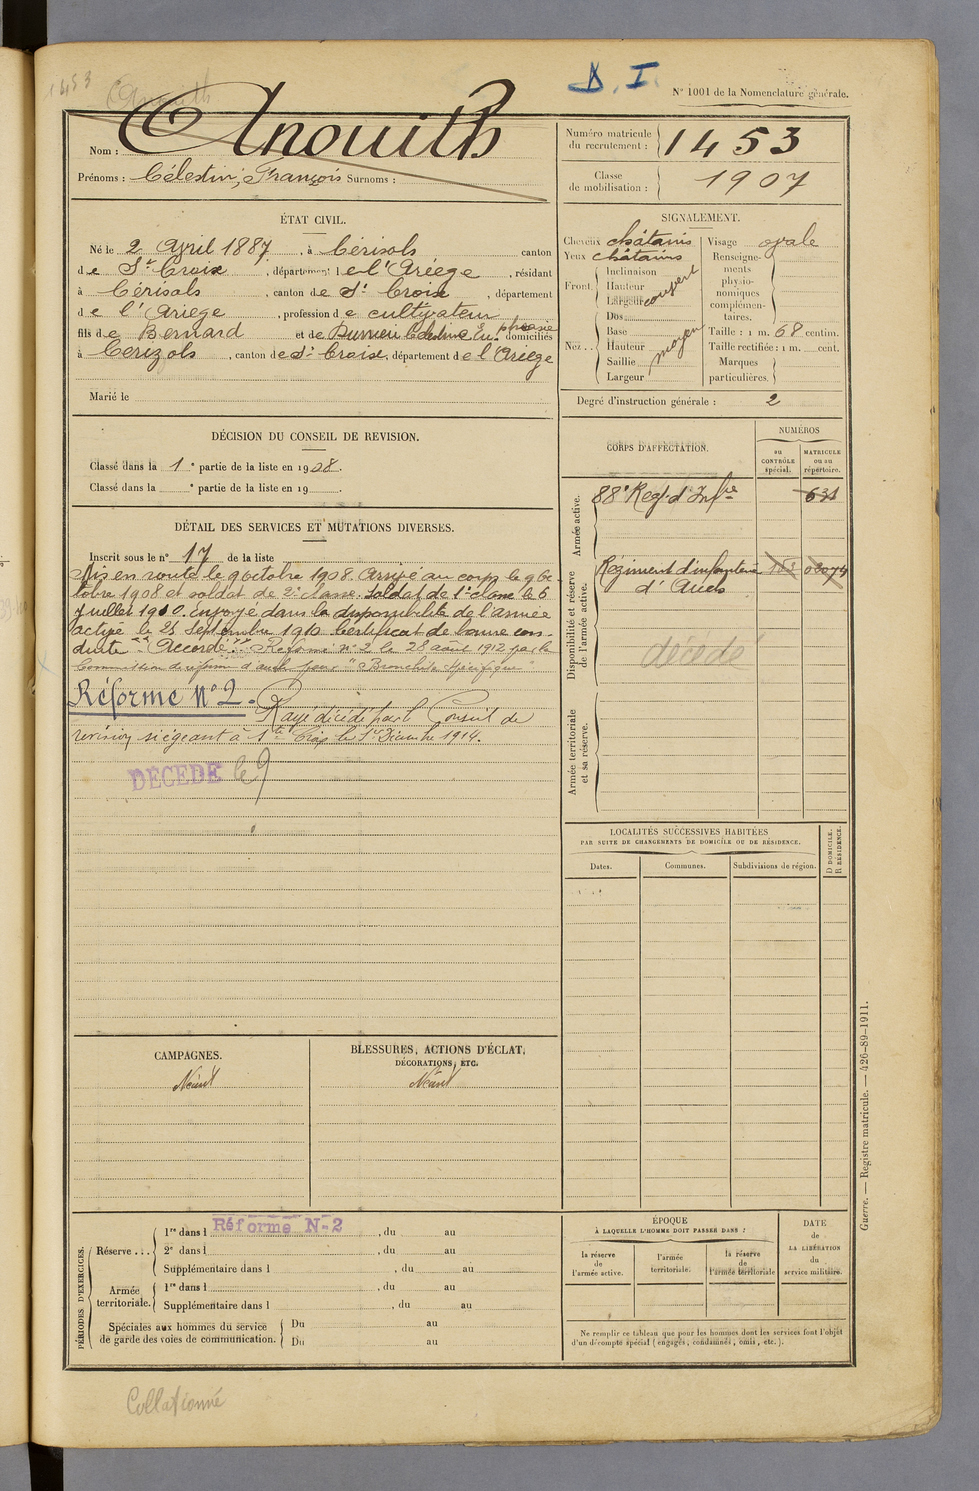 1453
Anouith
D. I.
N° 1001 de la Nomenclature générale.
Nom : Anouith
Prénoms : Célestin, François Surnoms :
Numéro matricule du recrutement : 1453
Classe de mobilisation : 1907
ÉTAT CIVIL.
Né le 2 Avril 1887, à Cérisols canton
de St Croix, département de l'Ariège, résidant
à Cérisols, canton de St Croix, département
de l'Ariège, profession de cultivateur
fils de Bernard et de domiciliés
à Cerizols, canton de St Croix, département de l'Ariège
Marié le
SIGNALEMENT.
Cheveux châtains
Yeux châtains
Front Inclinaison
Hauteur
Largeur
Nez Dos
Base
Hauteur
Saillie
Largeur
moyen
Visage ovale
Renseignements physionomiques complémentaires.
Taille : 1 m. 68 centim.
Taille rectifiée : 1 m. cent.
Marques particulières.
Degré d'instruction générale : 2
DÉCISION DU CONSEIL DE REVISION.
Classé dans la 1e partie de la liste en 1908.
Classé dans la e partie de la liste en 19 .
CORPS D'AFFECTATION.
NUMÉROS
au CONTRÔLE spécial.
MATRICULE ou au répertoire.
Armée active.
88e Reg. d'Infrie
631
Disponibilité et réserve de l'armée active.
Régiment d'infanterie
d'Auch
décédé
Armée territoriale et sa réserve.
DÉTAIL DES SERVICES ET MUTATIONS DIVERSES.
Inscrit sous le n° 17 de la liste
Mis en route le 9 octobre 1908. Arrivé au corps le 9 Oc-
tobre 1908 et soldat de 2e classe. Soldat de 1e classe le 6
Juillet 1910. Envoyé dans la disponibilité de l'armée
active le 25 Septembre 1910. Certificat de bonne con-
duite "Accordé". Réformé n° 2 le 28 août 1912 par la
Commission de réforme d'Auch pour "Bronchite spécifique"
Réforme N° 2. Rayé décédé par le Conseil de
revision siégeant à Ste Croix le 1er Décembre 1914.
DÉCÉDÉ le 9
LOCALITÉS SUCCESSIVES HABITÉES
PAR SUITE DE CHANGEMENTS DE DOMICILE OU DE RÉSIDENCE.
Dates.
Communes.
Subdivisions de région.
D DOMICILE.
R RÉSIDENCE.
CAMPAGNES.
Néant
BLESSURES, ACTIONS D'ÉCLAT,
DÉCORATIONS, ETC.
Néant
PÉRIODES D'EXERCICES.
Réforme N-2
Réserve . . . 1re dans l , du au
2e dans l , du au
Supplémentaire dans l , du au
Armée territoriale. 1re dans l , du au
Supplémentaire dans l , du au
Spéciales aux hommes du service de garde des voies de communication. Du au
Du au
ÉPOQUE
À LAQUELLE L'HOMME DOIT PASSER DANS :
la réserve de l'armée active.
l'armée territoriale.
la réserve de l'armée territoriale
DATE de LA LIBÉRATION du service militaire.
Ne remplir ce tableau que pour les hommes dont les services font l'objet
d'un décompte spécial (engagés, condamnés, omis, etc.).
Guerre. — Registre matricule. — 426-89-1911.
Collationné